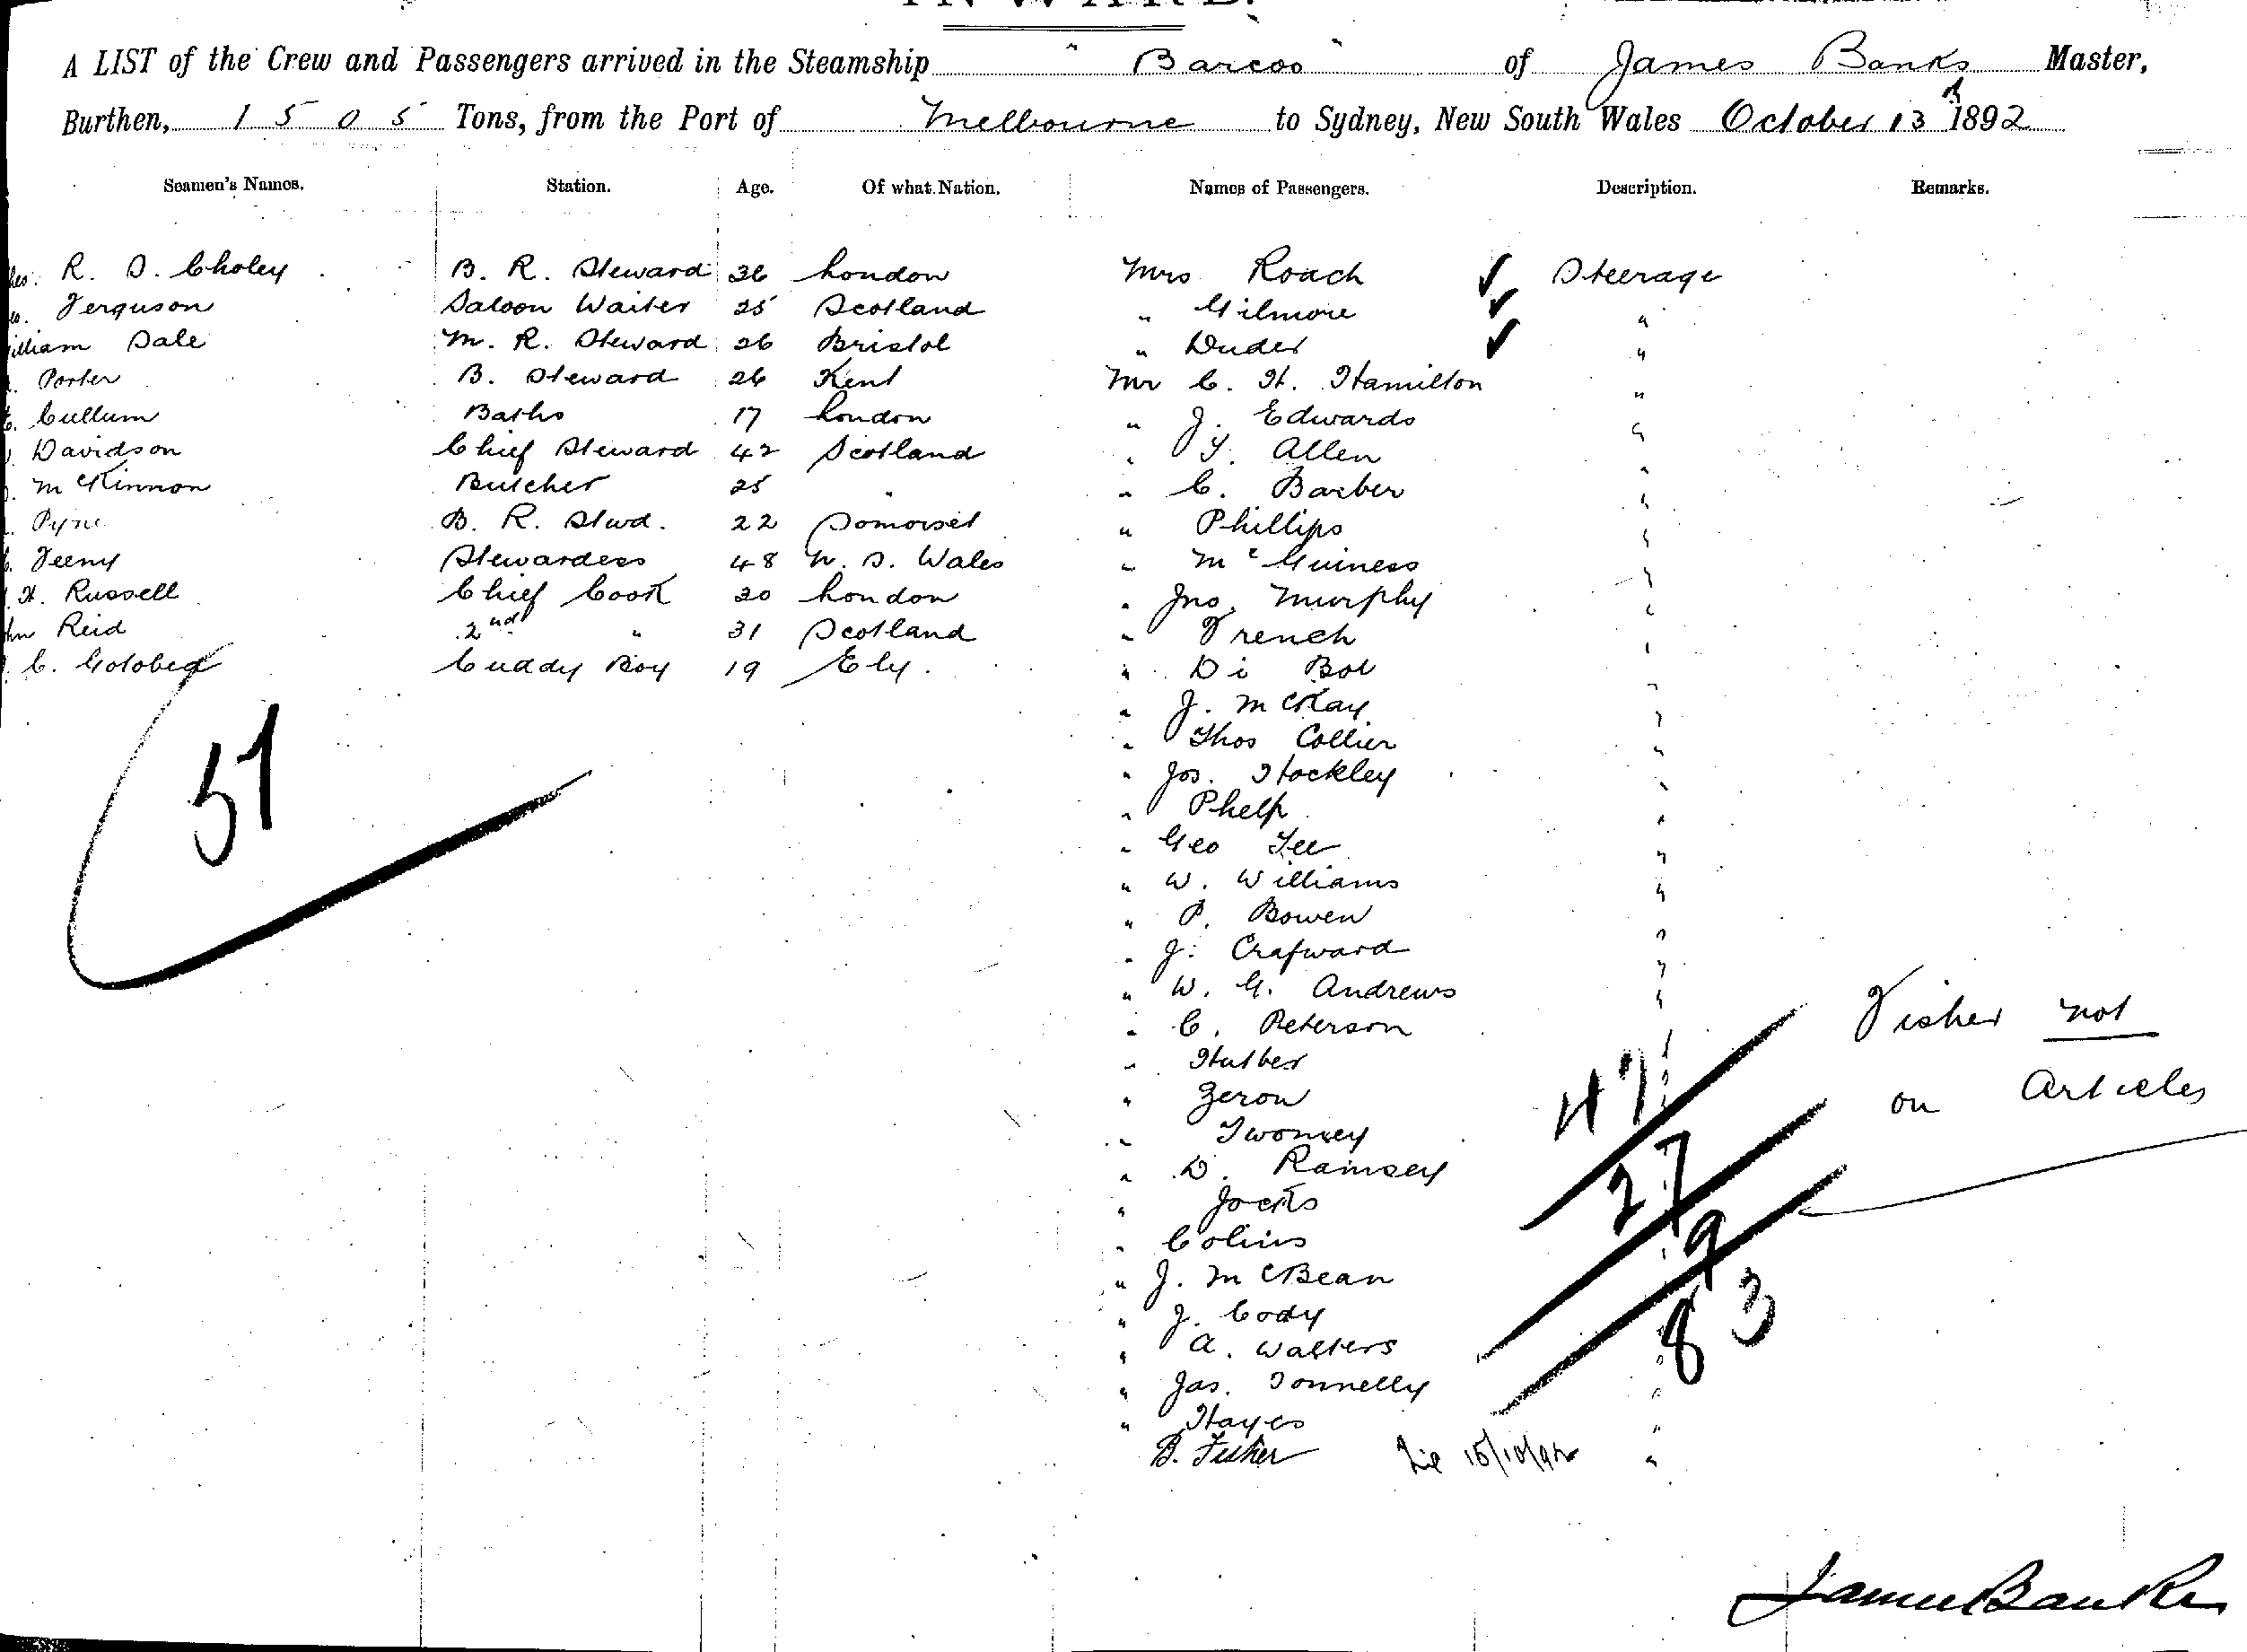 INWARD.
A LIST of the Crew and Passengers arrived in the Steamship "Barcoo" of James Banks Master,
Burthen, 1505 Tons, from the Port of Melbourne to Sydney, New South Wales October 13th 1892
Seamen's Names. Station. Age. Of what Nation. Names of Passengers. Description. Remarks.
R. S. Choley B. R. Steward 36 London Mrs Roach ✓ Steerage
Ferguson Saloon Waiter 25 Scotland " Gilmore ✓ "
William Dale M. R. Steward 26 Bristol " Duder ✓ "
Porter B. Steward 26 Kent Mr C. H. Hamilton "
Cullum Baths 17 London " J. Edwards "
Davidson Chief Steward 42 Scotland " Y. Allen "
McKinnon Butcher 25 " " C. Barber "
Pyne B. R. Stwd. 22 Somerset " Phillips "
Feeny Stewardess 48 N. S. Wales " McGuiness "
H. Russell Chief Cook 30 London " Jno. Murphy "
John Reid 2nd " 31 Scotland " French "
C. Golobed Cuddy Boy 19 Ely. " Di Bol "
" J. McKay "
51 " Thos Collier "
" Jos. Stockley "
" Phelp "
" Geo Lee "
" W. Williams "
" P. Bowen "
" J. Crafward "
" W. G. Andrews "
" C. Peterson " Fisher not
" Hulber "
" Zeron 47 " on Articles
" Twomey "
" D. Ramsey 27 "
" Jocks "
" Colins 9 "
" J. McBean "
" J. Cody 83 "
" A. Walters "
" Jas. Donnelly "
" Hayes "
B. Fisher 15/10/92 "
James Banks